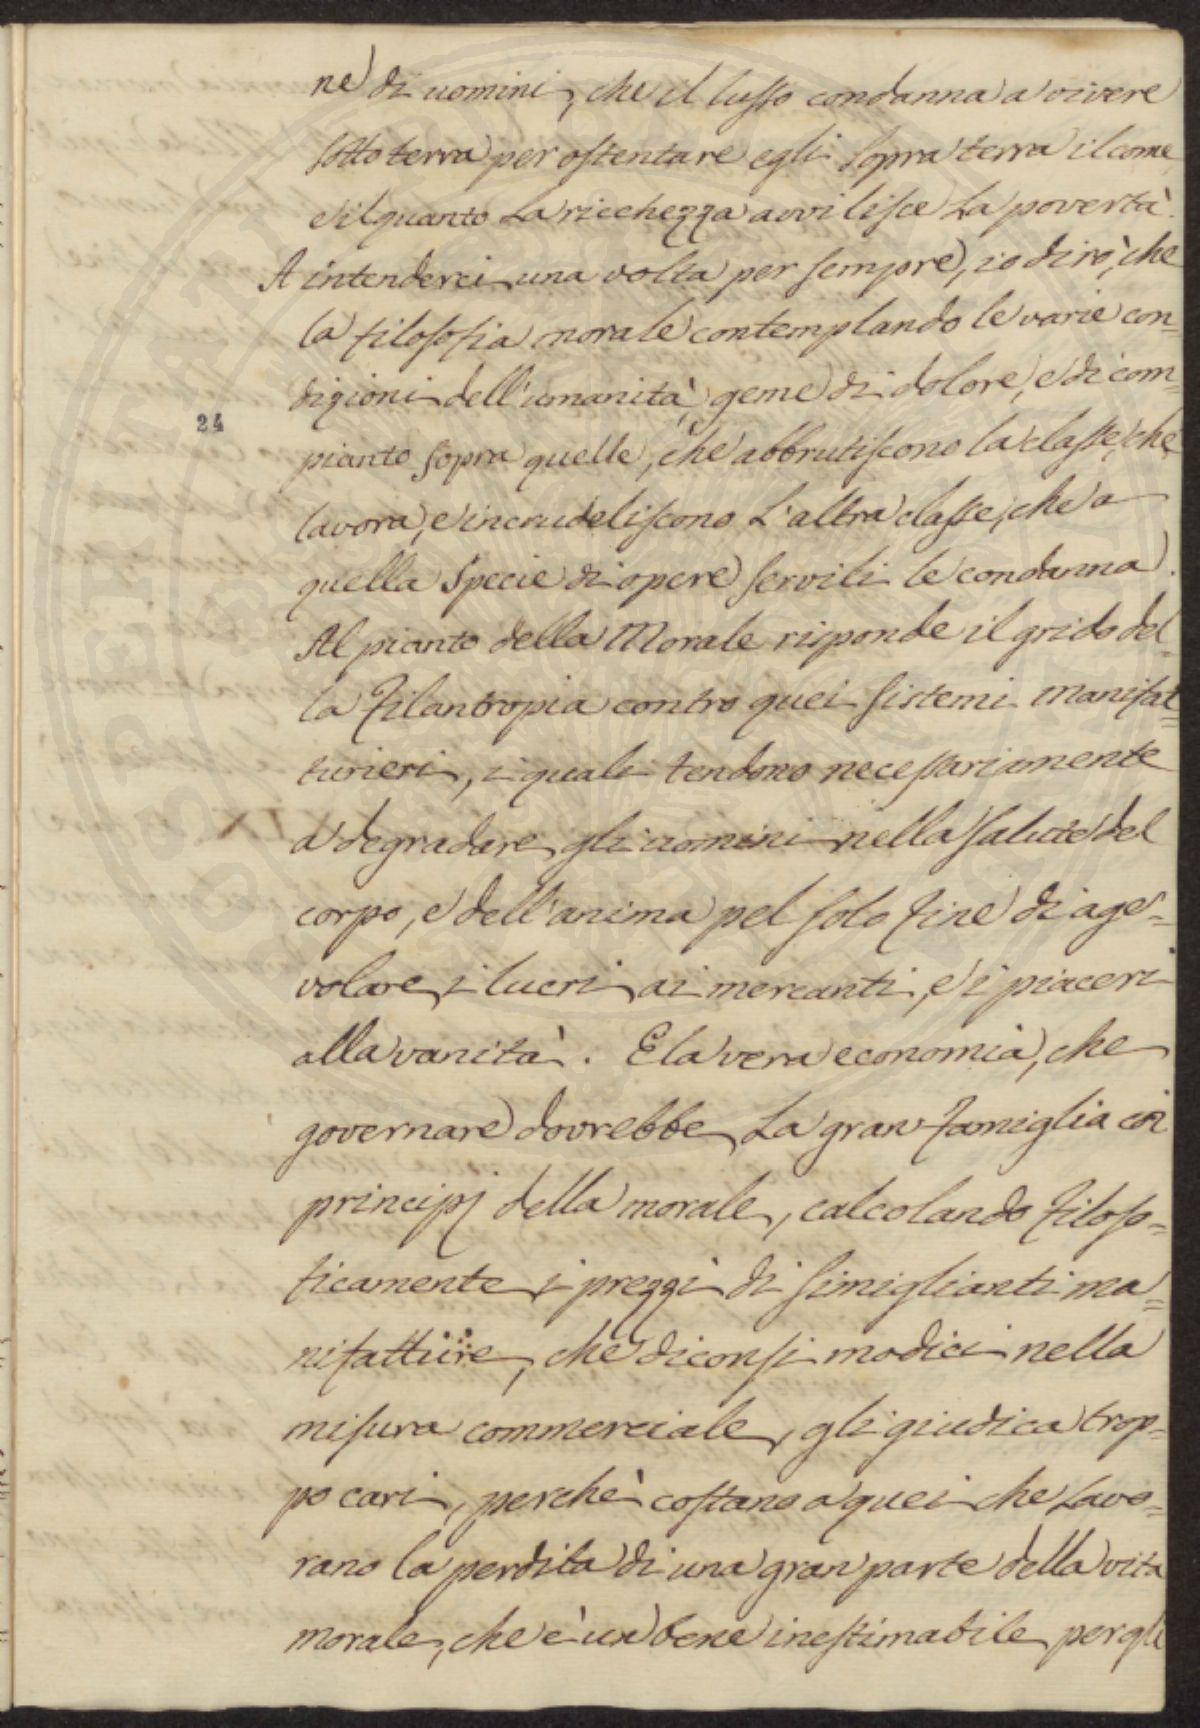 ne di uomini, che il lusso condanna a vivere
sotto terra per ostentare egli sopra terra il come,
e il quanto la ricchezza avvilisce la povertà.
A intenderci una volta per sempre, io dirò, che
la filosofia morale contemplando le varie con=
dizioni dell'umanità, geme di dolore, e di com=
24
pianto sopra quelle, che abbrutiscono la classe, che
lavora, e incrudeliscono l'altra classe, che a
quella specie di opere servili le condanna.
Al pianto della Morale risponde il grido del=
la Filantropia contro quei sistemi manifat=
turieri, i quali tendono necessariamente
a degradare gli uomini nella salute del
corpo, e dell'anima pel solo fine di age=
volare i lucri ai mercanti, e i piaceri
alla vanità. E la vera economia, che
governare dovrebbe la gran famiglia coi
principj della morale, calcolando filoso=
ficamente i prezzi di simiglianti ma=
nifatture, che diconsi modici nella
misura commerciale, gli giudica trop=
po cari, perchè costano a quei che lavo=
rano la perdita di una gran parte della vita
morale, che è un bene inestimabile per gli